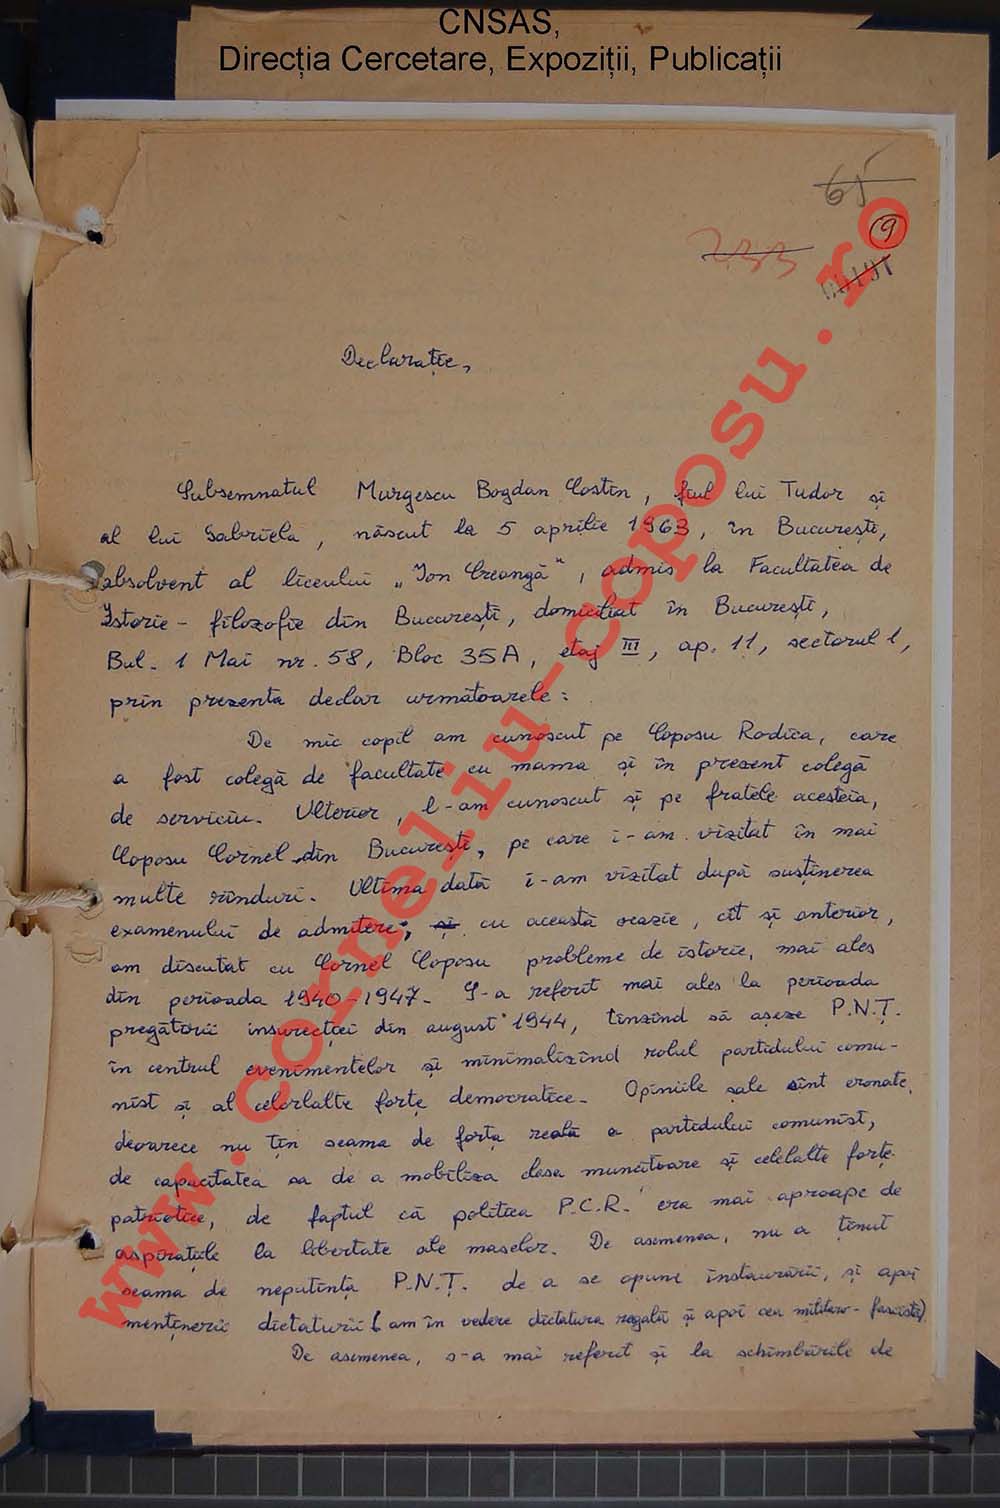 CNSAS,
Direcția Cercetare, Expoziții, Publicații
65
9
233
Declarație,
Subsemnatul Murgescu Bogdan Costin, fiul lui Tudor și
al lui Gabriela, născut la 5 aprilie 1963, în București,
absolvent al liceului „Ion Creangă", admis la Facultatea de
Istorie - filozofie din București, domiciliat în București,
Bul. 1 Mai nr. 58, Bloc 35A, etaj III, ap. 11, sectorul 1,
prin prezenta declar următoarele:
De mic copil am cunoscut pe Coposu Rodica, care
a fost colegă de facultate cu mama și în prezent colegă
de serviciu. Ulterior, l-am cunoscut și pe fratele acesteia,
Coposu Cornel din București, pe care i-am vizitat în mai
multe rînduri. Ultima dată i-am vizitat după susținerea
examenului de admitere; și cu această ocazie, cît și anterior,
am discutat cu Cornel Coposu probleme de istorie, mai ales
din perioada 1940-1947. S-a referit mai ales la perioada
pregătirii insurecției din august 1944, tinzînd să așeze P.N.Ț.
în centrul evenimentelor și minimalizînd rolul partidului comu-
nist și al celorlalte forțe democratice. Opiniile sale sînt eronate,
deoarece nu țin seama de forța reală a partidului comunist,
de capacitatea sa de a mobiliza clasa muncitoare și celelalte forțe
patriotice, de faptul că politica P.C.R. era mai aproape de
aspirațiile la libertate ale maselor. De asemenea, nu a ținut
seama de neputința P.N.Ț. de a se opune instaurării, și apoi
menținerii dictaturii (am în vedere dictatura regală și apoi cea militaro-fascistă).
De asemenea, s-a mai referit și la schimbările de
www.corneliu-coposu.ro